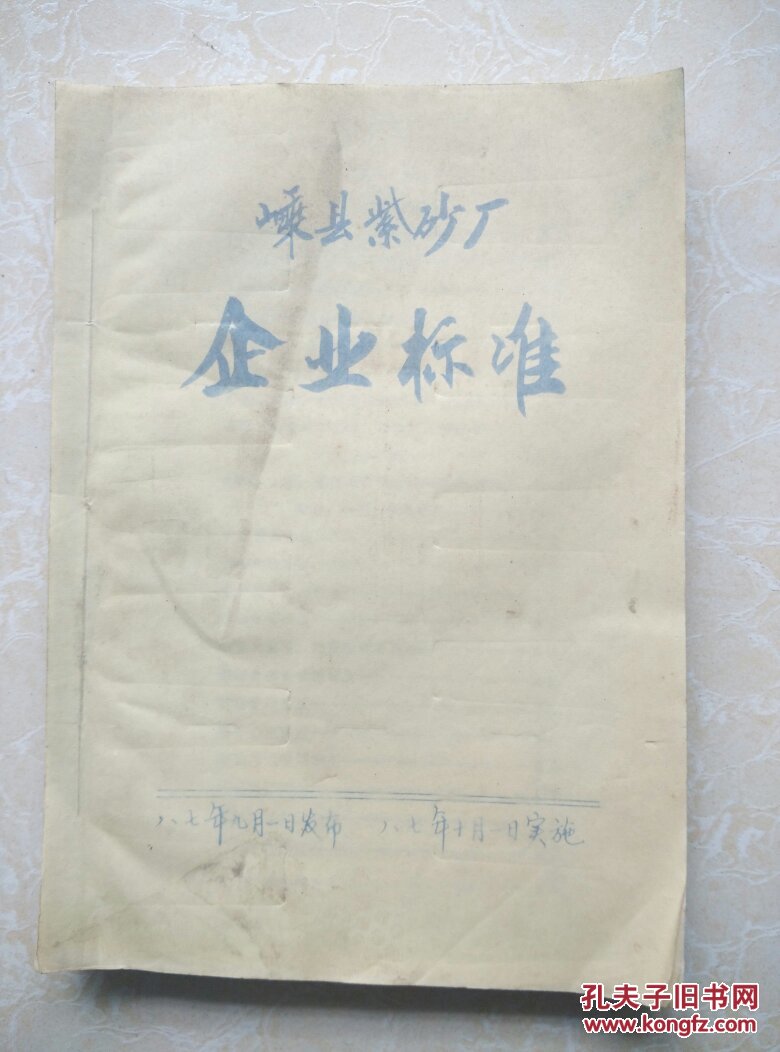 嵊县紫砂厂
企业标准
八七年九月一日发布 八七年十月一日实施
孔夫子旧书网
www.kongfz.com